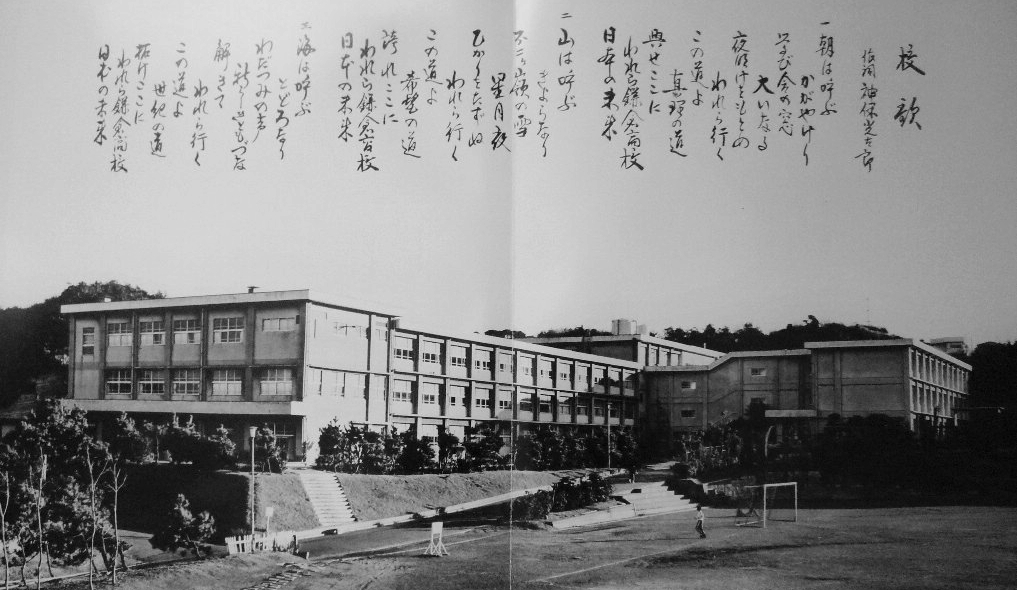 校歌
作詞 神保光太郎
一 朝は呼ぶ
かがやけり
学び舎の窓
大いなる
夜明けをもとめ
われら行く
この道よ
真理の道
興せここに
われら鎌倉高校
日本の未来
二 山は呼ぶ
きよらなり
不二ヶ嶺の雪
星月夜
ひかりをたずね
われら行く
この道よ
希望の道
誇れここに
われら鎌倉高校
日本の未来
三 海は呼ぶ
とどろなり
わだつみの声
ともづな
解きて
われら行く
この道よ
世紀の道
拓けここに
われら鎌倉高校
日本の未来